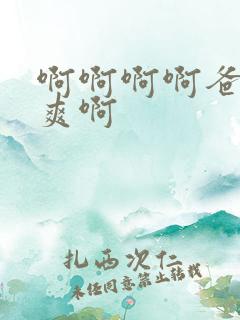 啊啊啊啊爸
爽啊
扎西次仁
未经同意禁止转载